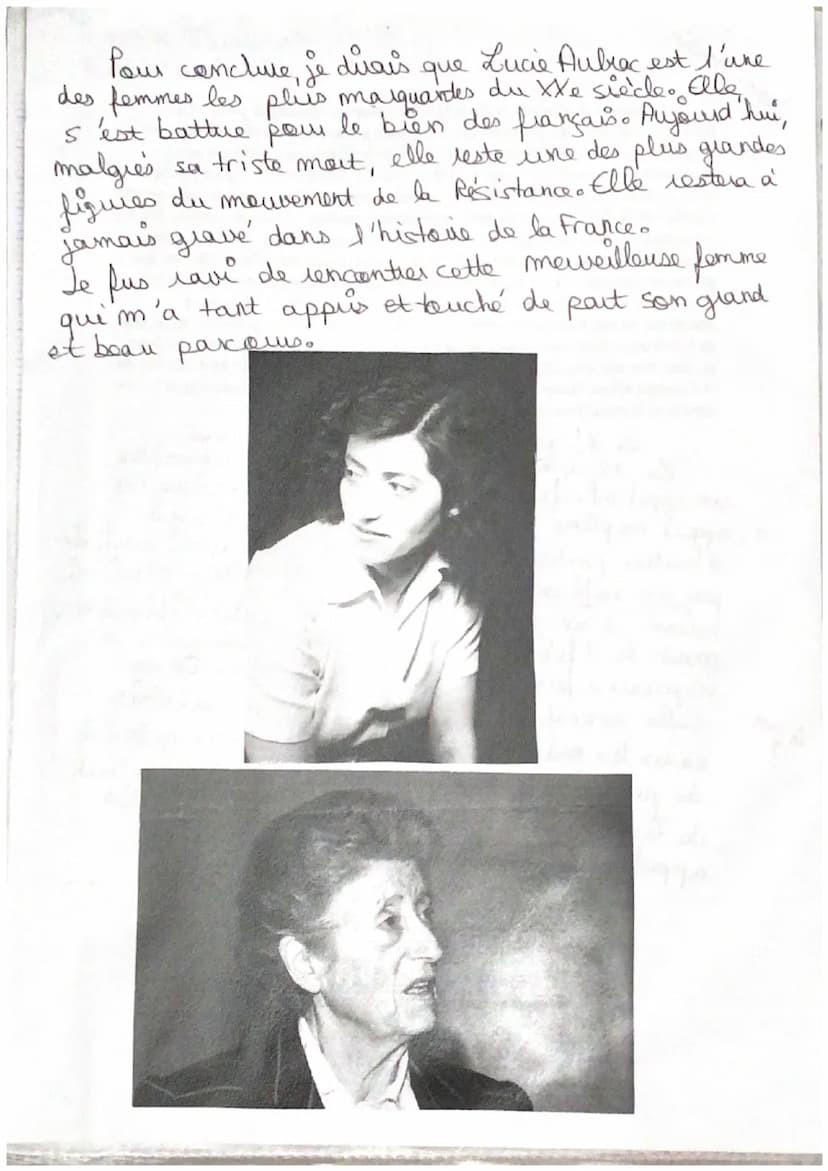 Pour conclure, je dirais que Lucie Aubrac est l'une
des femmes les plus marquantes du XXe siècle. Elle
s'est battue pour le bien des français. Aujourd'hui,
malgrés sa triste mort, elle reste une des plus grandes
figures du mouvement de la Résistance. Elle restera à
jamais gravé dans l'histoire de la France.
Je fus ravi de rencontrer cette merveilleuse femme
qui m'a tant appris et touché de part son grand
et beau parcours.